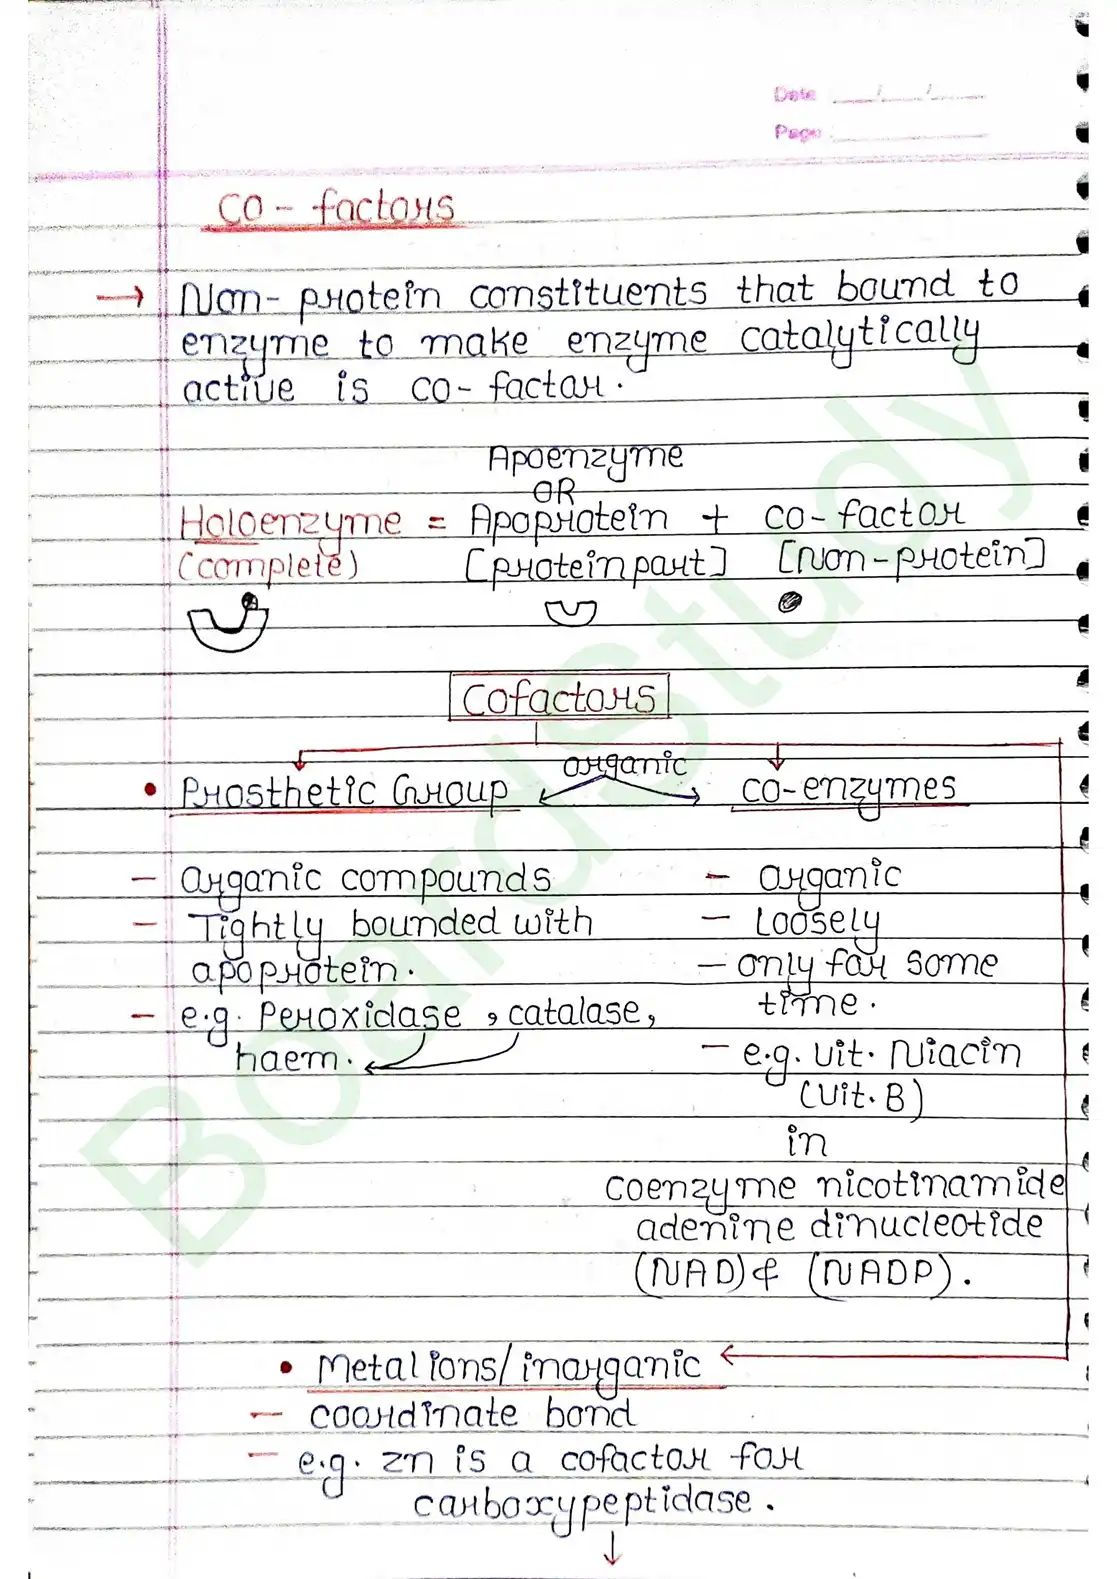 Date
Page
CO-factors
→ Non-protein constituents that bound to
enzyme to make enzyme catalytically
active is co-factor.
Apoenzyme
OR
Holoenzyme = Apoprotein + co-factor
(complete) [protein part] [Non-protein]
Cofactors
organic
• Prosthetic Group
- Organic compounds
- Tightly bounded with
apoprotein.
- e.g. Peroxidase, catalase,
haem.
co-enzymes
- organic
- Loosely
- only for some
time.
- e.g. vit. Niacin
(Vit. B)
in
coenzyme nicotinamide
adenine dinucleotide
(NAD) & (NADP).
• Metal ions/inorganic
- coordinate bond
- e.g. zn is a cofactor for
carboxypeptidase.
↓
BoardStudy